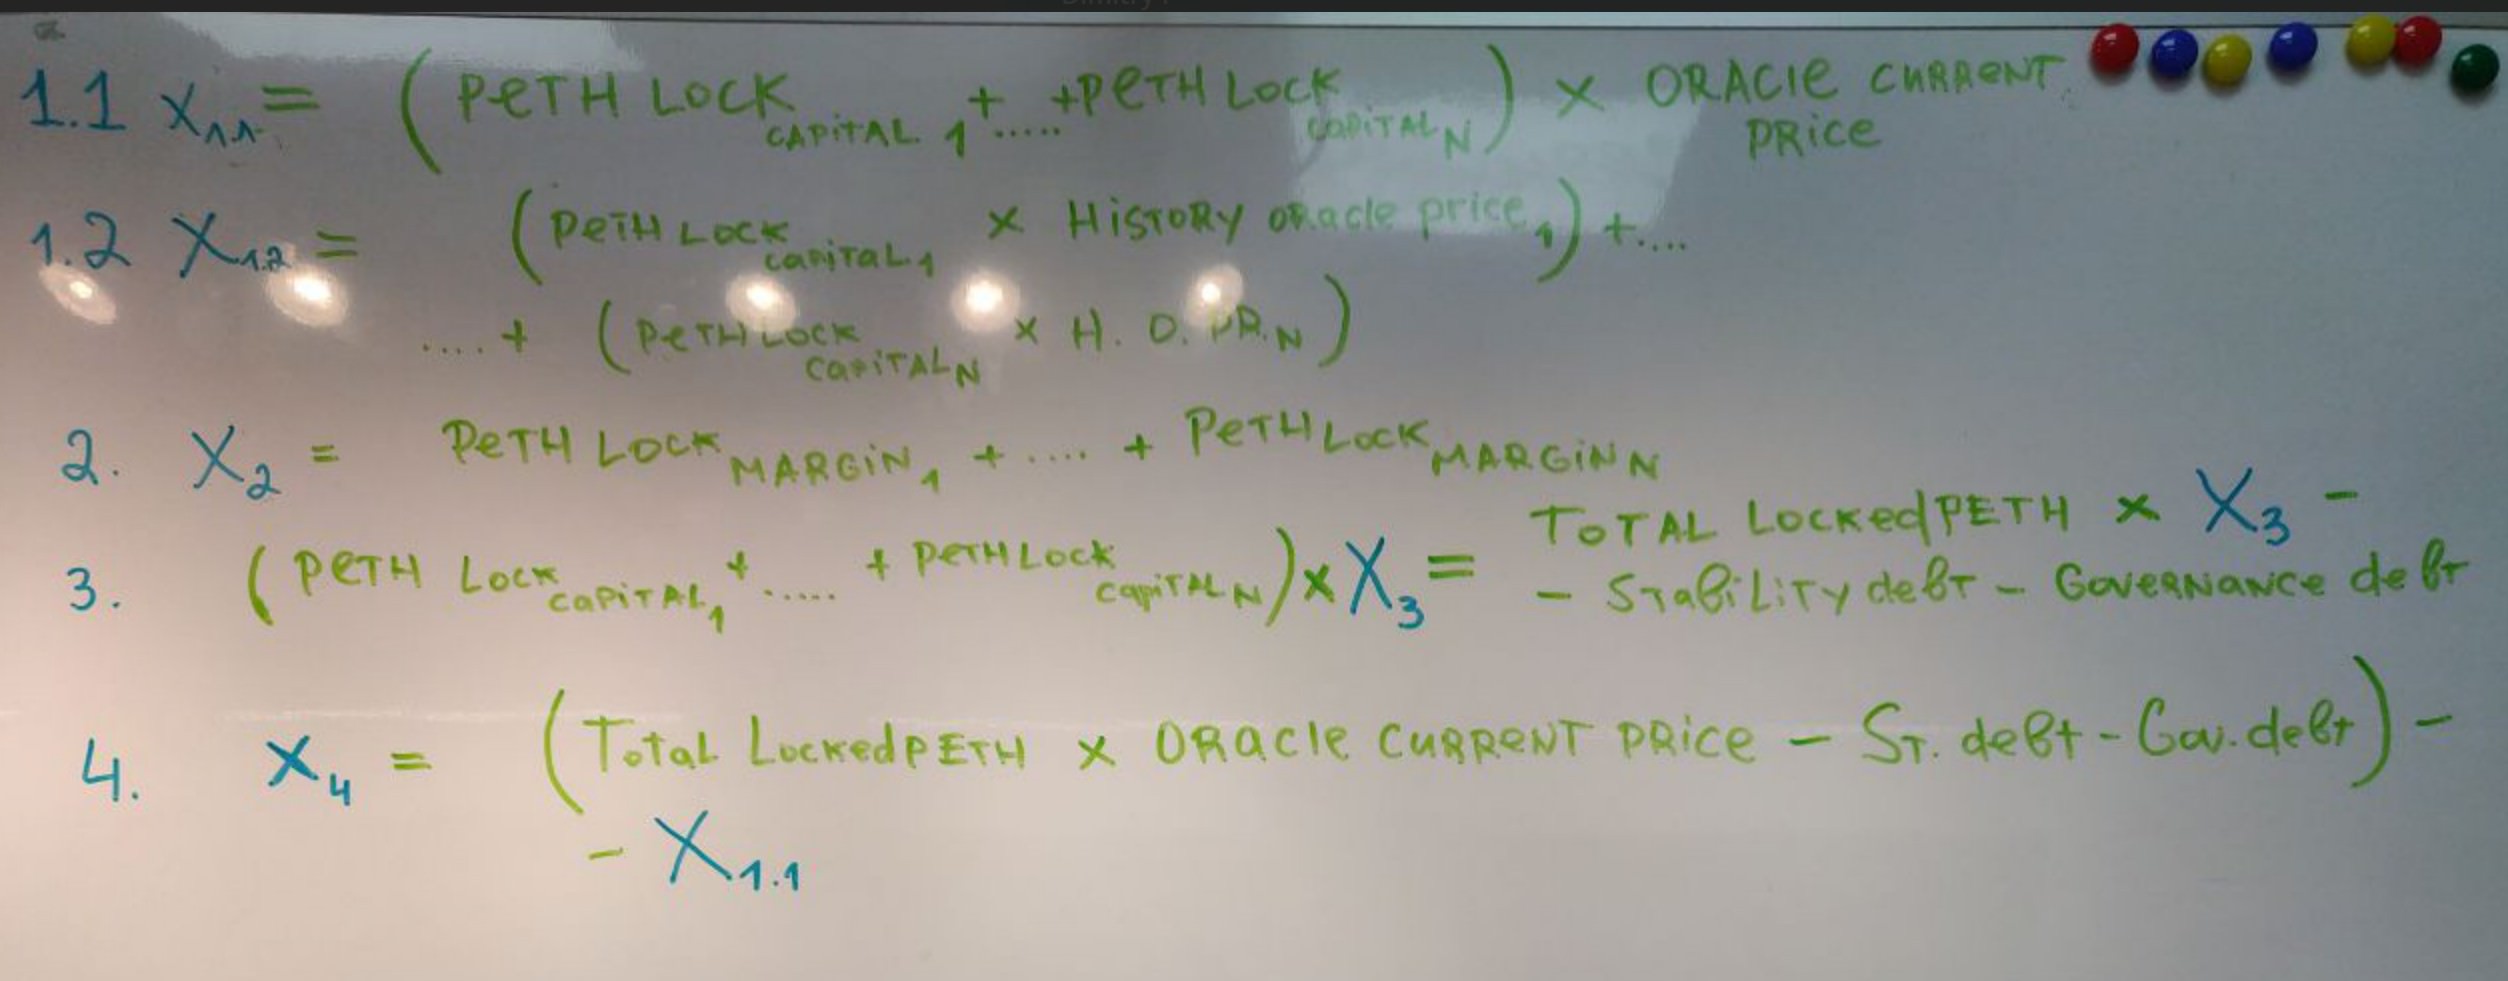 1.1 X1.1. = ( PETH LOCK CAPITAL 1 + ..... + PETH LOCK CAPITAL N ) × ORACLE CURRENT PRICE
1.2 X1.2 = ( PETH LOCK CAPITAL 1 × HISTORY ORacle price 1 ) + ....
.... + ( PETH LOCK CAPITAL N × H. O. PR. N )
2. X2 = PETH LOCK MARGIN 1 + .... + PETH LOCK MARGIN N
3. ( PETH LOCK CAPITAL 1 + ..... + PETH LOCK CAPITAL N ) × X3 = TOTAL LOCKed PETH × X3 -
- STabiLiTy debt - GOVERNANCE debt
4. X4 = ( Total Locked PETH × ORacle CURRENT PRICE - ST. debt - Gov. debt ) -
- X1.1